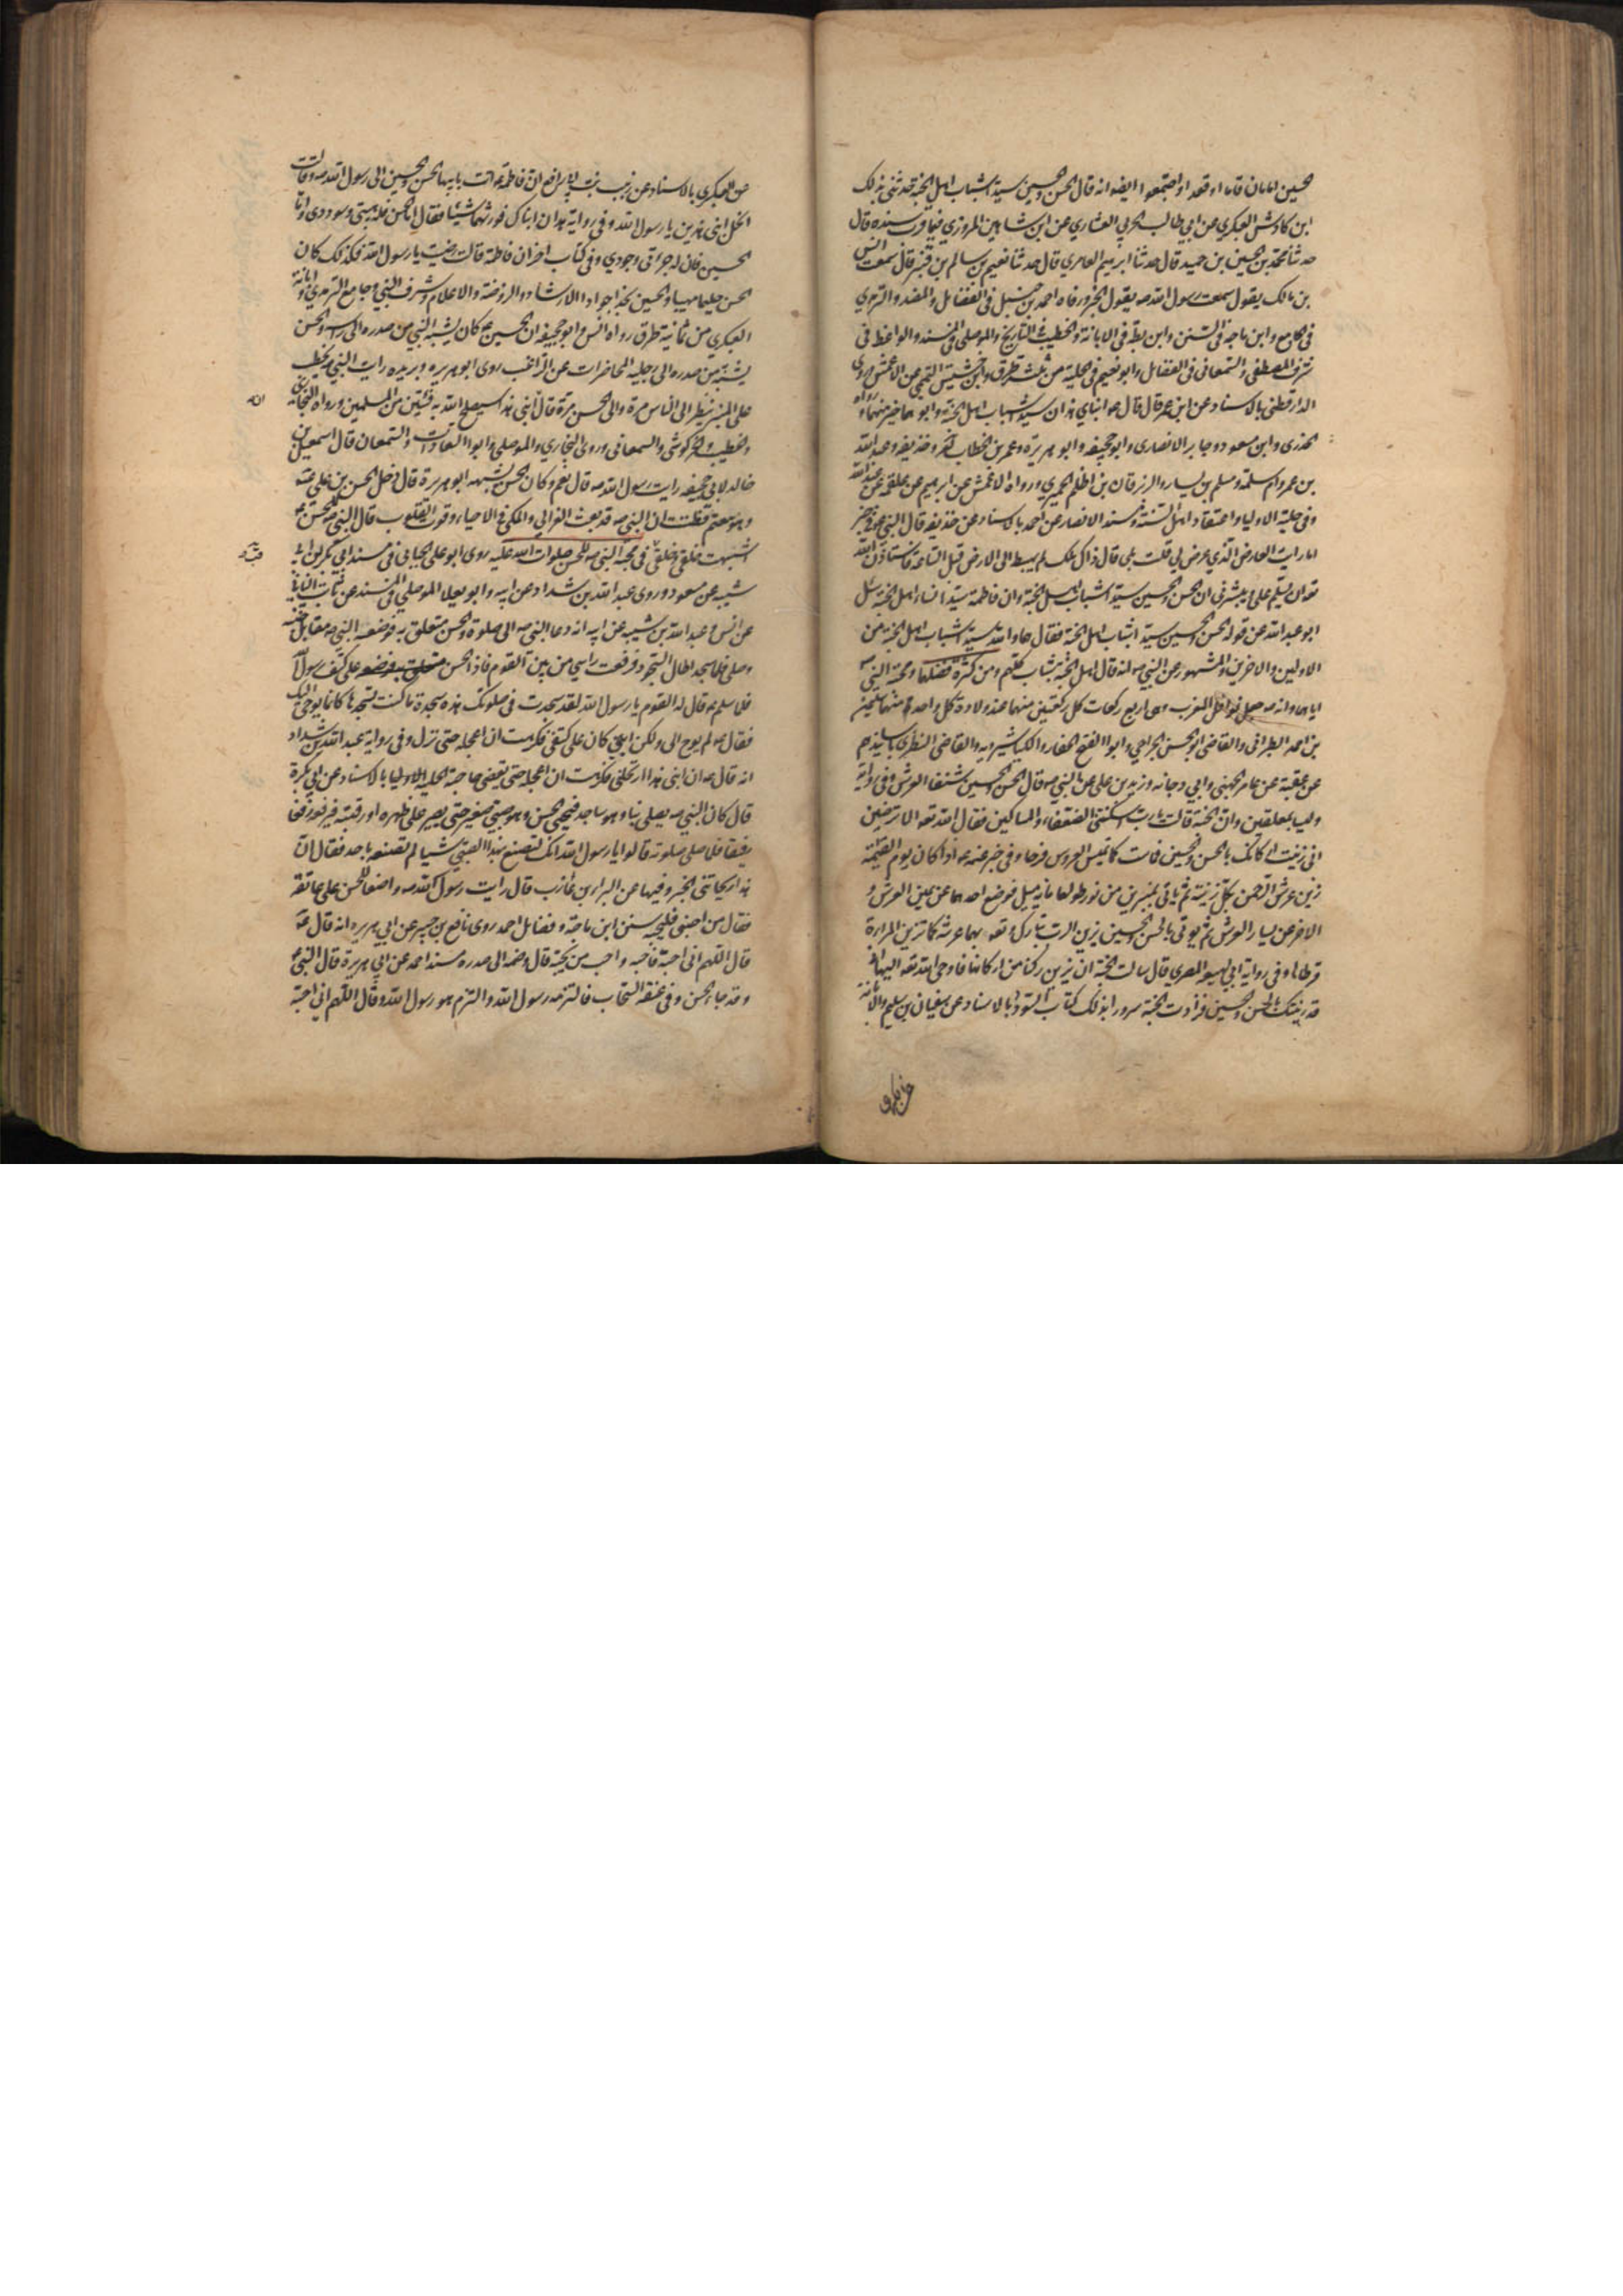 الحسين امامان قاما او قعدا واجتمعوا ايضا انه قال الحسن والحسين سيدا شباب اهل الجنة حدثني بذلك
ابن كادش العكبري عن ابي طالب الحربي العشاري عن ابن شاهين المروزي فيما قرب سنده قال
حدثنا محمد بن الحسين بن حميد قال حدثنا ابرهيم العامري قال حدثنا نعيم بن سالم بن قنبر قال سمعت انس
بن مالك يقول سمعت رسول الله صه يقول الخبر ورواه احمد بن حنبل في الفضائل والمسند والترمذي
في الجامع وابن ماجة في السنن وابن بطة في الابانة والخطيب في التاريخ والموصلي في المسند والواعظ في
شرف المصطفى والسمعاني في الفضائل وابو نعيم في الحلية من ثلثة طرق وابن حشيش التميمي عن الاعمش وروى
الدارقطني بالاسناد عن ابن عمر قال قال عم ابناي هذان سيدا شباب اهل الجنة وابوهما خير منهما ورواه
الخدري وابن مسعود وجابر الانصاري وابو جحيفه وابو هريرة وعمر بن الخطاب وحذيفه وعبد الله
بن عمر وام سلمة ومسلم بن يسار والزبرقان بن اظلم الحميري ورواه الاعمش عن ابرهيم عن علقمه عن عبد الله
وفي حلية الاوليا واعتقاد اهل السنة ومسند الانصار عن احمد بالاسناد عن حذيفه قال النبي عم في خبر
اما رايت العارض الذي عرض لي قلت بلى قال ذاك ملك لم يهبط الى الارض قبل الساعة فاستاذن الله
تع ان يسلم علي ويبشرني ان الحسن والحسين سيدا شباب اهل الجنة وان فاطمة سيدة نساء اهل الجنة سئل
ابو عبد الله عن قوله الحسن والحسين سيدا شباب اهل الجنة فقال هما والله سيدا شباب اهل الجنة من
الاولين والاخرين والمشهور عن النبي صه انه قال اهل الجنة شباب كلهم ومن كثرة فضلهما ومحبة النبي
اياهما وانه صه جعل نوافل المغرب وهي اربع ركعات كل ركعتين منها عند ولادة كل واحد منهما سليمن
بن احمد الطبراني والقاضي ابو الحسن الجراحي وابوا الفتح الحفار والكيا شيرويه والقاضي النطنزي باسانيدهم
عن عقبة عن عامر الجهني وابي دجانه وزيد بن علي عن النبي صه قال الحسن والحسين شنفا العرش وفي رواية
وليسا بمعلقين وان الجنة قالت يا رب اسكنتني الضعفاء والمساكين فقال الله تع الا ترضين
اني زينت اركانك بالحسن والحسين فماست كما تميس العروس فرحا وفي خبر عنه عم اذا كان يوم القيمة
زين عرش الرحمن بكل زينة ثم ياتي بمنبرين من نور طولهما مائة ميل فيوضع احدهما عن يمين العرش و
الاخر عن يسار العرش ثم يوتى بالحسن والحسين يزين الرب تبارك وتع بهما عرشه كما تزين المراءة
قرطاها وفي رواية ابي لهيعه المصري قال سالت الجنة ان يزين ركنا من اركانها فاوحى الله تع اليها اني
قد زينتك بالحسن والحسين فزادت الجنة سرورا بذلك كتاب السؤدد بالاسناد عن سفيان بن سليم والابانة
عن العكبري
عن العكبري بالاسناد عن زينب بنت ابي رافع ان فاطمة عم اتت بابنيها الحسن والحسين الى رسول الله صه وقالت
انحل ابني هذين يا رسول الله وفي رواية هذان ابناك فورثهما شيئا فقال اما الحسن فله هيبتي وسوددي واما
الحسين فان له جراتي وجودي وفي كتاب اخر ان فاطمة قالت رضيت يا رسول الله فلذلك كان
الحسن حليما مهيبا والحسين نجدا جوادا الارشاد والروضة والاعلام وشرف النبي وجامع الترمذي وابانة
العكبري من ثمانية طرق رواه انس وابو جحيفه ان الحسين عم كان يشبه النبي من صدره الى راسه والحسن
يشبه من صدره الى رجليه المحاضرات عن الراغب روى ابو هريره وبريده رايت النبي يخطب
على المنبر ينظر الى الناس مرة والى الحسن مرة وقال ان ابني هذا سيصلح الله به فئتين من المسلمين ورواه البخاري
والخطيب والخركوشي والسمعاني وروى البخاري والموصلي وابوا السعادات والسمعان قال اسمعيل بن
خالد لابي جحيفه رايت رسول الله صه قال نعم وكان الحسن يشبهه ابو هريرة قال دخل الحسن بن علي عم
وهو معتم فظننت ان النبي صه قد بعث الغزالي والمكي في الاحياء وقوت القلوب قال النبي صه للحسن عم
اشبهت خلقي وخلقي في محبة النبي صه للحسن صلوات الله عليه روى ابو علي الجبائي في مسند ابي بكر بن ابي
شيبه عن مسعود وروى عبد الله بن شداد عن ابيه وابو يعلى الموصلي في المسند عن ثابت البناني
عن انس وعبد الله بن شيبه عن ابيه انه دعا النبي صه الى صلوة والحسن متعلق به فوضعه النبي صه مقابل جنبه
وصلى فلما سجد اطال السجود فرفعت راسي من بين القوم فاذا الحسن على كتف رسول الله
فلما سلم عم قال له القوم يا رسول الله لقد سجدت في صلوتك هذه سجدة ما كنت تسجدها كانما يوحى اليك
فقال عم لم يوح الي ولكن ابني كان على كتفي فكرهت ان اعجله حتى نزل وفي رواية عبد الله بن شداد
انه قال عم ان ابني هذا ارتحلني فكرهت ان اعجله حتى يقضي حاجته الحليه الاوليا بالاسناد عن ابي بكرة
قال كان النبي صه يصلي بنا وهو ساجد فيجيء الحسن وهو صبي صغير حتى يصير على ظهره او رقبته فيرفعه رفعا
رفيقا فلما صلى صلوته قالوا يا رسول الله انك لتصنع بهذا الصبي شيا لم تصنعه باحد فقال ان
هذا ريحانتي الخبر وفيها عن البراء بن عازب قال رايت رسول الله صه واضعا للحسن على عاتقه
فقال من احبني فليحبه سنن ابن ماجة وفضايل احمد روى نافع بن جبير عن ابي هريره انه قال عم
قال اللهم اني احبه فاحبه واحب من يحبه قال وضمه الى صدره مسند احمد عن ابي هريرة قال النبي
وقد جاء الحسن وفي عنقه السخاب فالتزمه رسول الله والتزم هو رسول الله وقال اللهم اني احبه